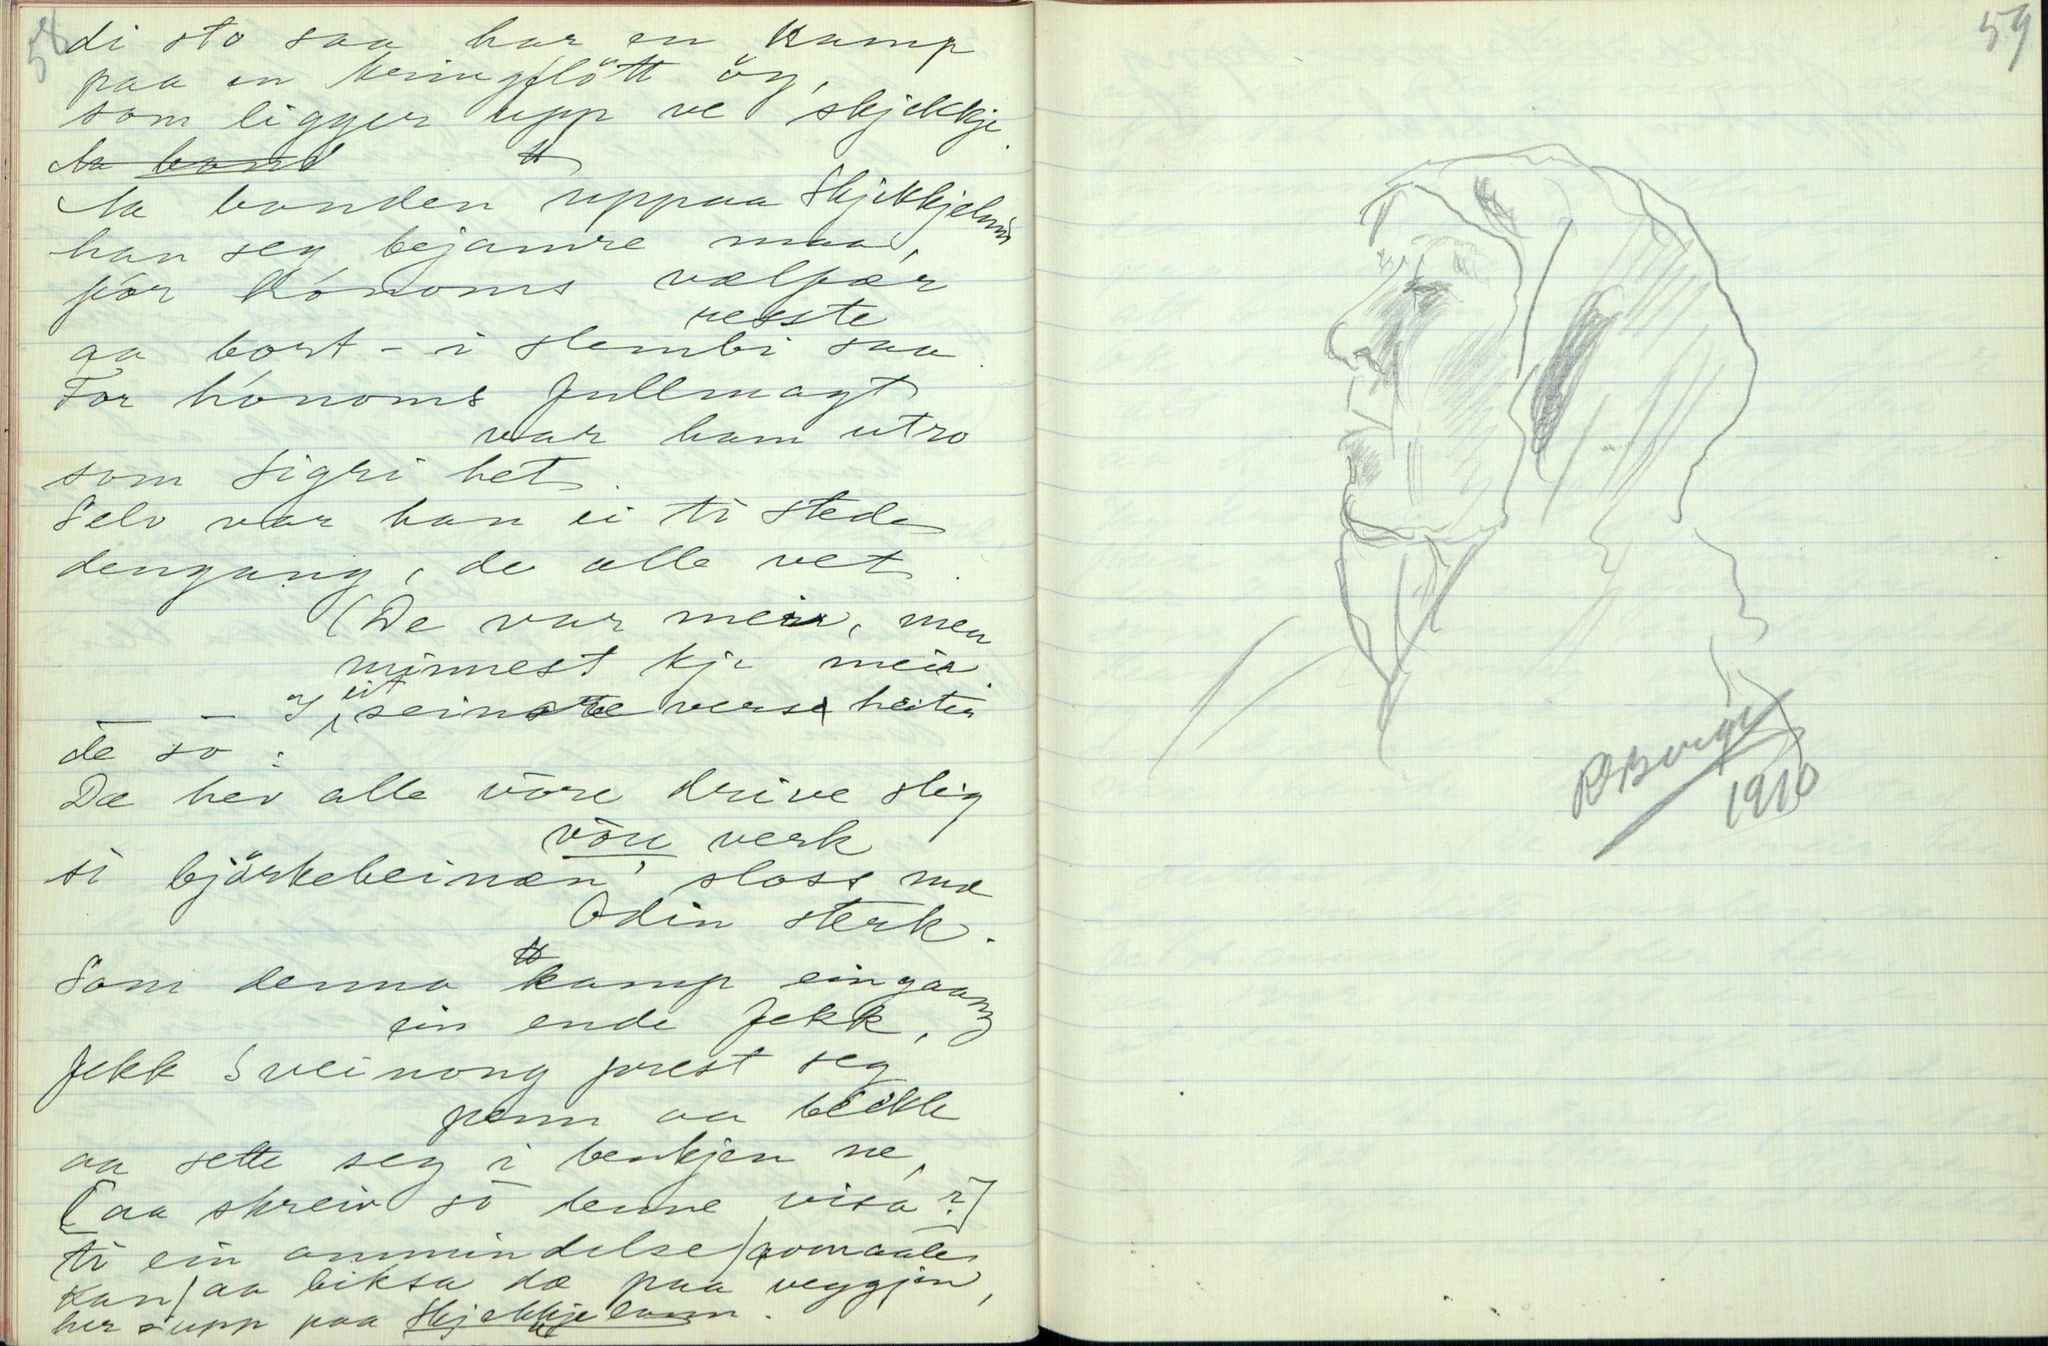 58
di sto saa har en kamp
paa en kringflött öy,
som ligger upp ve Skjekkje.
Aa bond
Aa bonden uppaa Skjekkjelnin
han seg bejamre maa,
for hónoms vælfær
reiste
aa bort - i slembi saa
For hónoms fullmagt
var ham utro
som Sigri het.
Selv var han ei ti stede
dengang, de alle vet.
(De var meir, men
minnest kje meir
— — I eit seinare vers heiter
de so:
Da hev alle våre drive slig
våre verk
si björkebeinæn, sloss mæ
Odin sterk.
Som denna kamp eingaang
ein ende fekk,
fekk Sveinong prest seg
penn aa blekk
aa sette seg i benkjen ne,
[aa skreiv so denne visa?]
ti ein ammindelse / avmaale
kan / aa biksa dæ paa veggjen,
her upp paa Skjekkjelann.
59
RBerge
1910